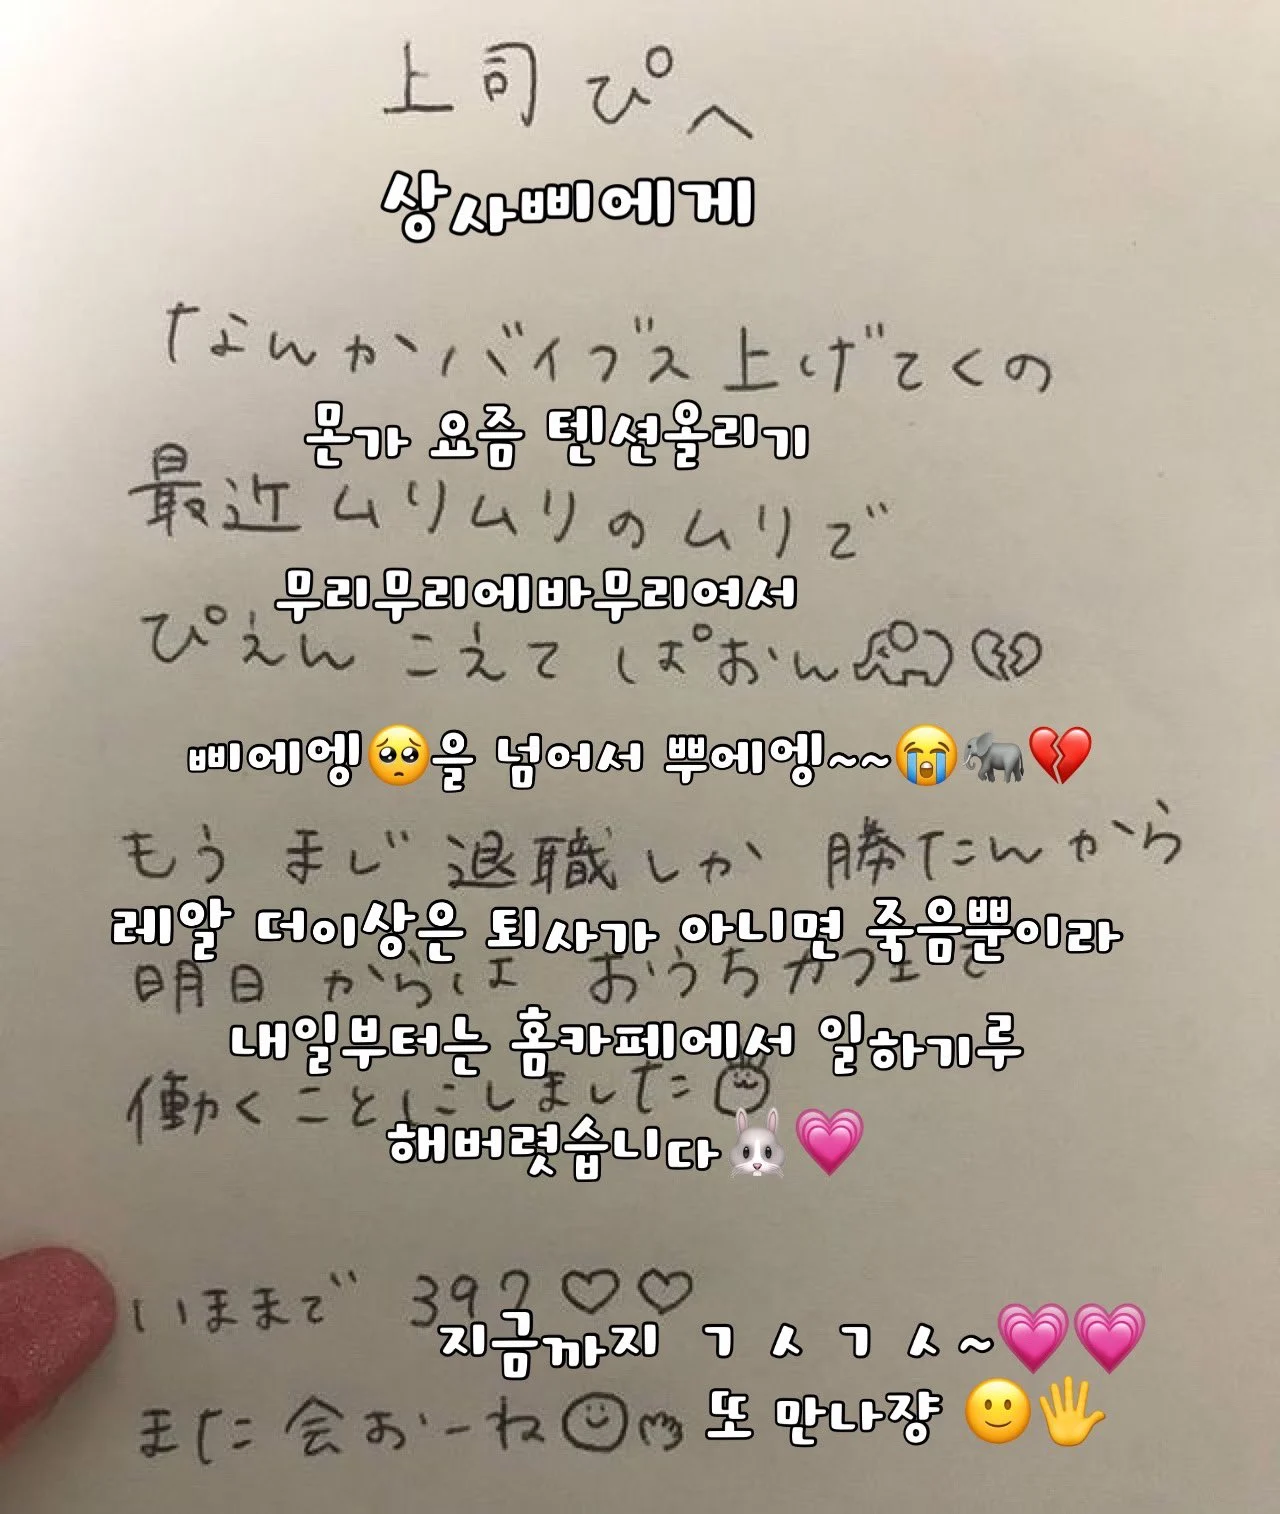 上司ぴへ
상사삐에게
なんかバイブス上げてくの
몬가 요즘 텐션올리기
最近ムリムリのムリで
무리무리에바무리여서
ぴえんこえてぱおん🐘💔
삐에엥🥺을 넘어서 뿌에엥~~😭🐘💔
もうまじ退職しか勝たんから
레알 더이상은 퇴사가 아니면 죽음뿐이라
明日からはおうちカフェで
내일부터는 홈카페에서 일하기루
働くことにしました
해버렷습니다🐰💗
いままで 39?♡♡
지금까지 ㄱㅅㄱㅅ~💗💗
また会おーね
또 만나쟝 🙂🖐